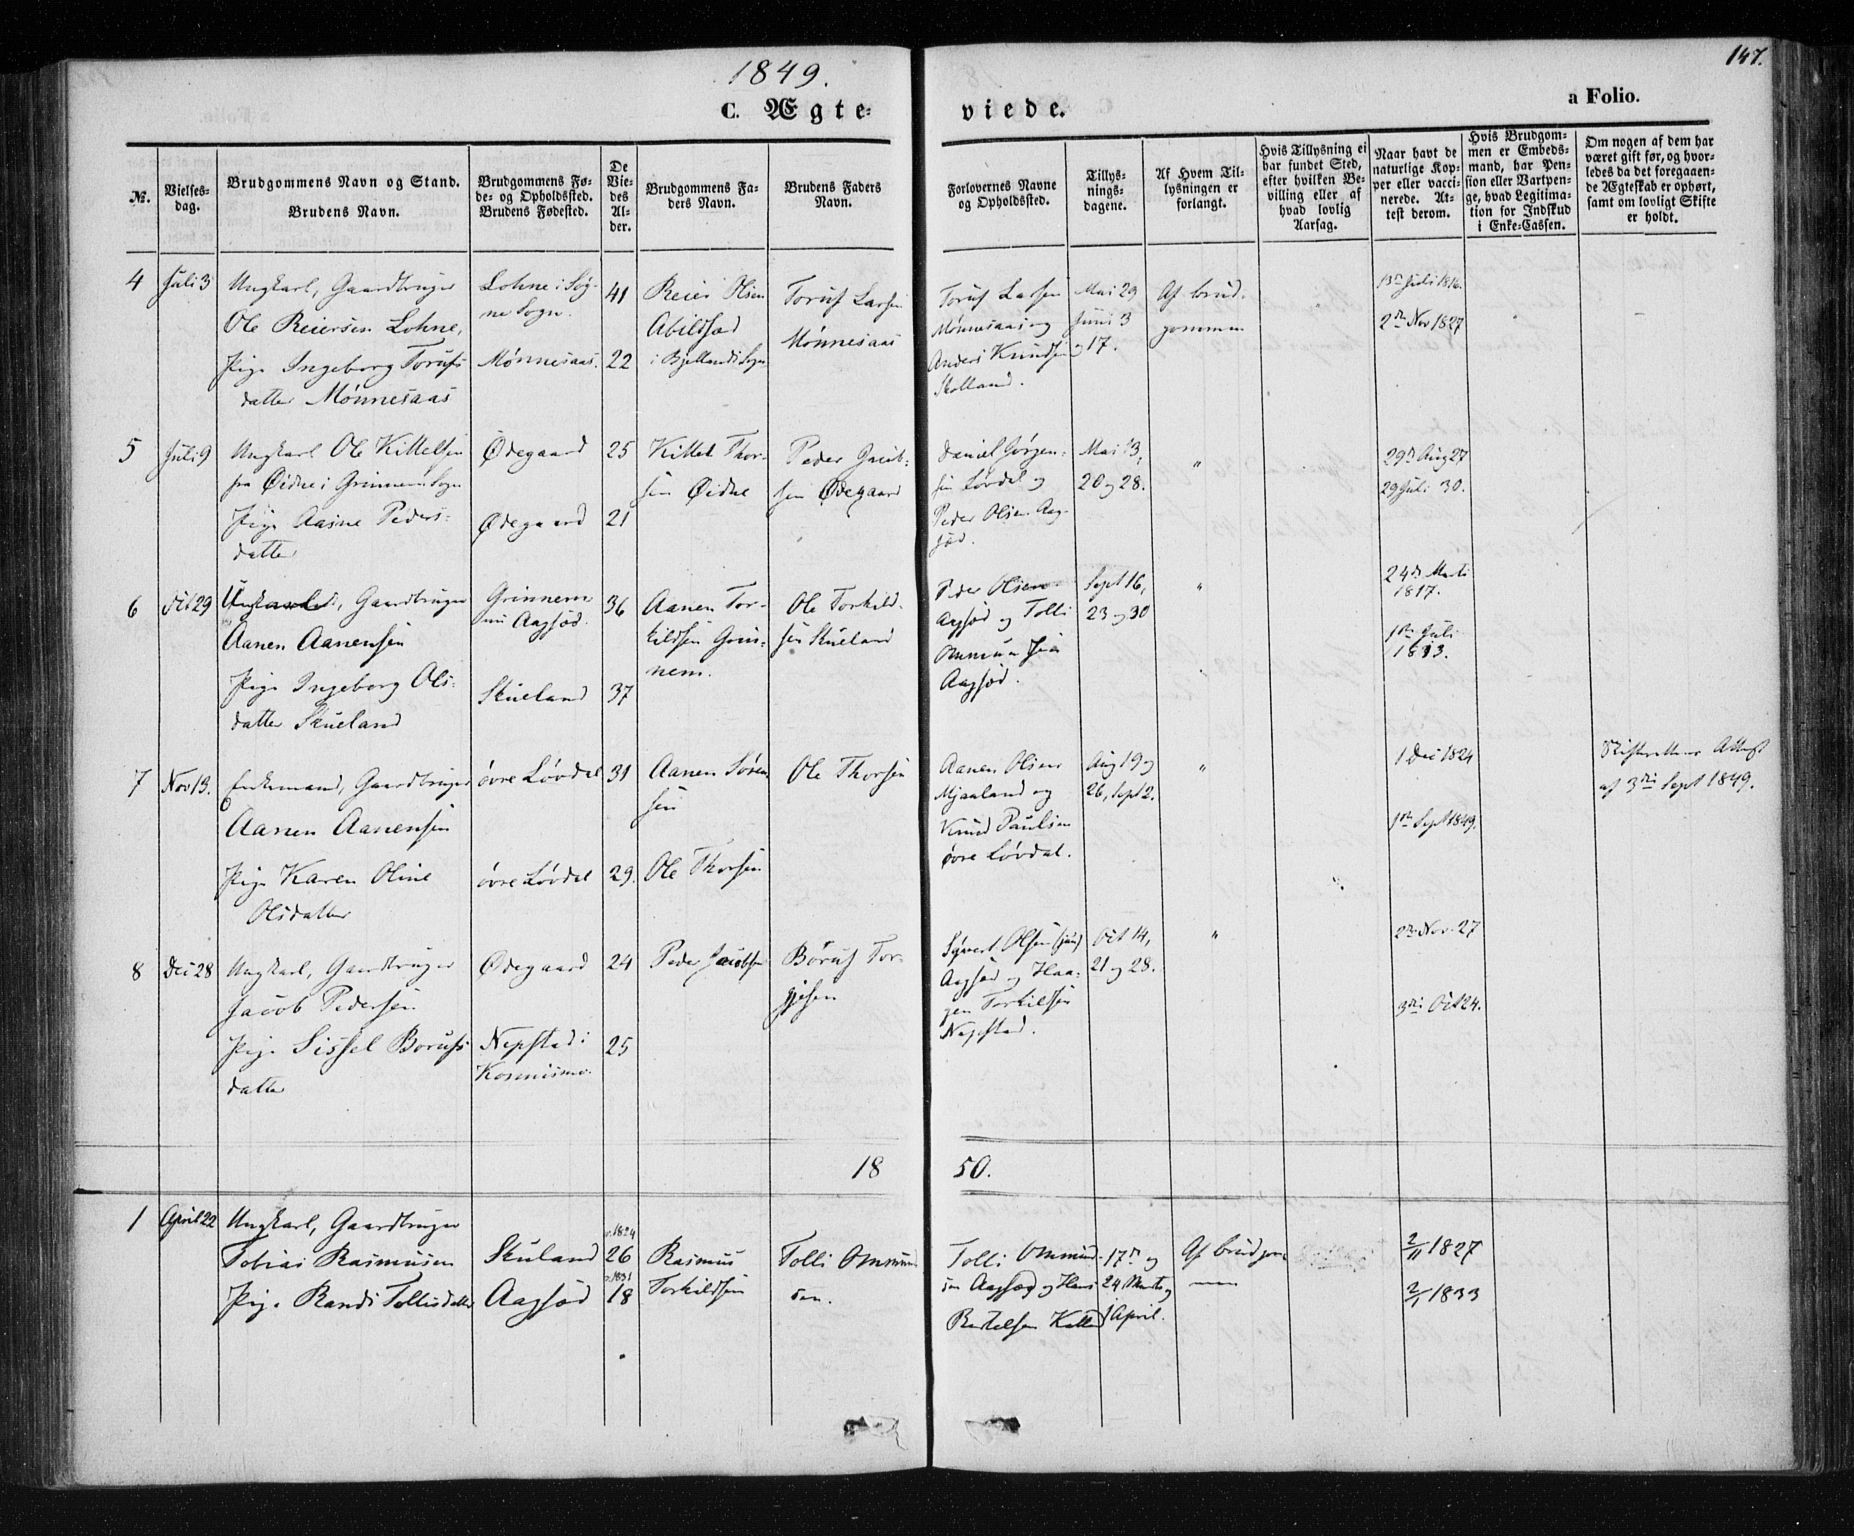 1849.
147.
C. Ægte-
viede.
a Folio.
№.
Vielses-
dag.
Brudgommens Navn og Stand.
Brudens Navn.
Brudgommens Fø-
de- og Opholdssted.
Brudens Fødested.
De
Vie-
des
Al-
der.
Brudgommens Fa-
ders Navn.
Brudens Faders
Navn.
Forlovernes Navne
og Opholdssted.
Tillys-
nings-
dagene.
Af Hvem Til-
lysningen er
forlangt.
Hvis Tillysning ei
har fundet Sted,
efter hvilken Be-
villing eller af
hvad lovlig
Aarsag.
Naar havt de
naturlige Kop-
per eller vacci-
nerede. At-
test derom.
Hvis Brudgom-
men er Embeds-
mand, har Pen-
sion eller Vartpen-
ge, hvad Legitima-
tion for Indskud
i Enke-Cassen.
Om nogen af dem har
været gift før, og hvor-
ledes da det foregaaen-
de Ægteskab er ophørt,
samt om lovligt Skifte
er holdt.
4
Juli 3
Ungkarl, Gaardbruger
Ole Reiersen Lohne,
Pige Ingeborg Torufs
datter Mønnesaas
Lohne i Søg-
ne Sogn.
Mønnesaas.
41
22
Reier Olsen
Abildsød
i Bjellands Sogn
Toruf Larsen
Mønnesaas
Toruf Larsen
Mønnesaas og
Anders Knudsen
Skolland.
Mai 29
Juni 3
og 17.
Af brud-
gommen
13de Juli 1816.
2de Nov 1827
5
Juli 9
Ungkarl Ole Kittelsen
fra Øidne i Grinnems Sogn
Pige Aasne Peders-
datter
Ødegaard
Ødegaard
25
21
Kittel Thor-
sen Øidne
Peder Jacob-
sen Ødegaard
Daniel Jørgen-
sen Løvdal og
Peder Olsen Aag-
sød.
Mai 13,
20 og 28.
"
29de Aug 27
29 Juli 30.
6
Oct 29
Ungkarl, Gaardbruger
Aanen Aanensen
Pige Ingeborg Ols-
datter Skueland
Grinnem
nu Aagsød.
Skueland
36
37
Aanen Tor-
kildsen Grin-
nem.
Ole Torkild-
sen Skueland
Peder Olsen
Aagsød og Tolli
Ommundsen
Aagsød.
Sept 16,
23 og 30
"
24de Marts
1817.
1ste Juli
1813.
7
Nov 13.
Enkemand, Gaardbruger
Aanen Aanensen
Pige Karen Oline
Olsdatter
øvre Løvdal
øvre Løvdal
31
29.
Aanen Søren
sen
Ole Thorsen
Ole Thorsen
Aanen Olsen
Mjaaland og
Knud Paulsen
øvre Løvdal.
Aug 19 og
26, Sept 2.
"
1 Dec 1824
1ste Sept 1849.
Skifterettens Attest
af 3die Sept 1849.
8
Dec 28
Ungkarl, Gaardbruger
Jacob Pedersen
Pige Sissel Borufs
datter
Ødegaard
Nepstad i
24
25
Peder Jacobsen
Børuf Tor-
gjesen
Syvert Olsen (jun)
Aagsød og Haa-
gen Torkilsen
Nepstad.
Oct 14,
21 og 28.
"
23 Nov. 27
3die Oct 24.
18
50.
1
April 22
Ungkarl, Gaardbruger
Tobias Rasmusen
Pige Randi Tollisdatter
Skuland
Aagsød
1824
26
1831
18
Rasmus
Torkildsen
Tolli Ommund
sen.
Tolli Ommund-
sen Aagsød og Hans
Bertelsen
17de og
24 Marts og
1 April.
Af brudgom
2/11 1827
2/1 1833